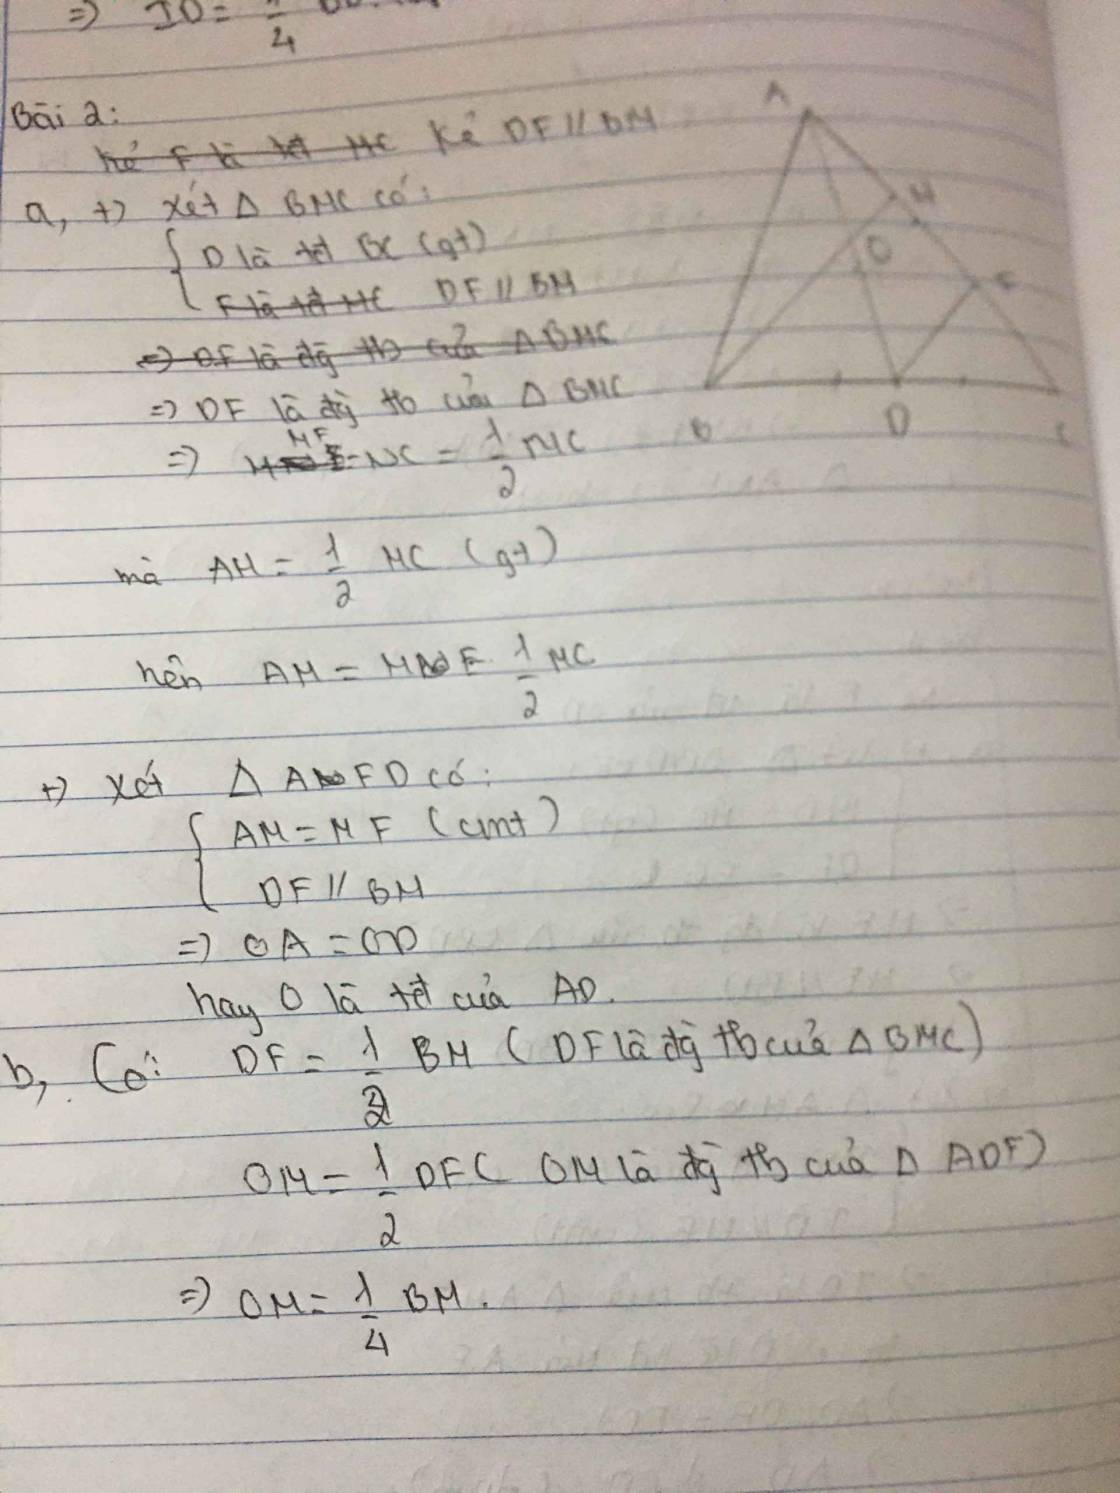 => ID = 1/4
Bài 2:
Kẻ DF // BM
a, +) Xét Δ BMC có:
D là tđ BC (gt)
F là tđ MC DF // BM
=> DF là đg tb của Δ BMC
=> DF là đg tb của Δ BMC
=> MF = NC = 1/2 MC
mà AM = 1/2 MC (gt)
nên AM = MF 1/2 MC
+) Xét Δ AFD có:
AM = MF (cmt)
DF // BM
=> OA = OD
hay O là tđ của AD.
b, Có: DF = 1/2 BM ( DF là đg tb của Δ BMC)
OM = 1/2 DF ( OM là đg tb của Δ ADF)
=> OM = 1/4 BM.
A
M
O
F
B
D
C